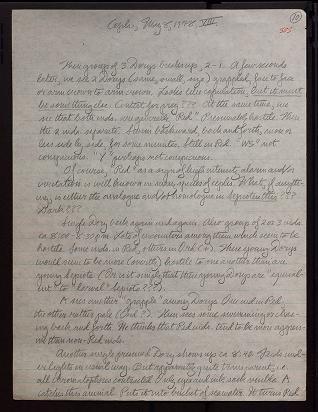 Cephs, May 8, 1978, VIII
10
Then group of 3 Dorys breaks up, 2-1. A few seconds
later, we see 2 Dorys (same, small, size) grappled, face to face
or arm crown to arm crown. Looks like copulation, but it must
be something else. Contest for prey??? At the same time, we
see that both inds. are generally "Red". Presumably hostile. Then
the 2 inds. separate. Swim backward, back and forth, more or
less side by side, for some minutes. Still in Red. "Ws" not
conspicuous. "Y" perhaps not conspicuous.
Of course, "Red" as a sign of high interest, alarm and/or
is well known in many species of cephs. What, if anything,
is either the analogue and/or homologue in Sepioteuthis???
Dark???
Single Dory back again and again. Also group of 2 or 3 inds.
ca. 8:00-8:30 p.m. Lots of encounters among them which seem to be
hostile. Some inds. in Red, others in Dk (?). These young Dorys
would seem to be more (overtly) hostile to one another than are
young Sepiots. (Or is it simply that these young Dorys are "equivalent"
to "normal" Sepiots???).
A sees another "grapple" among Dorys. One ind. in Red,
the other rather pale. Then sees some maneuvering or chasing
back and forth. He thinks that Red inds. tend to be more aggressive
than non-Red inds.
Another single presumed Dory shows up ca. 8:40. Feeds under
lights in usual way. But apparently quite transparent, i.e.
all chromatophores contracted. Only eyes and ink sack visible. A
catches this animal. Puts it into bucket of seawater. It turns Red